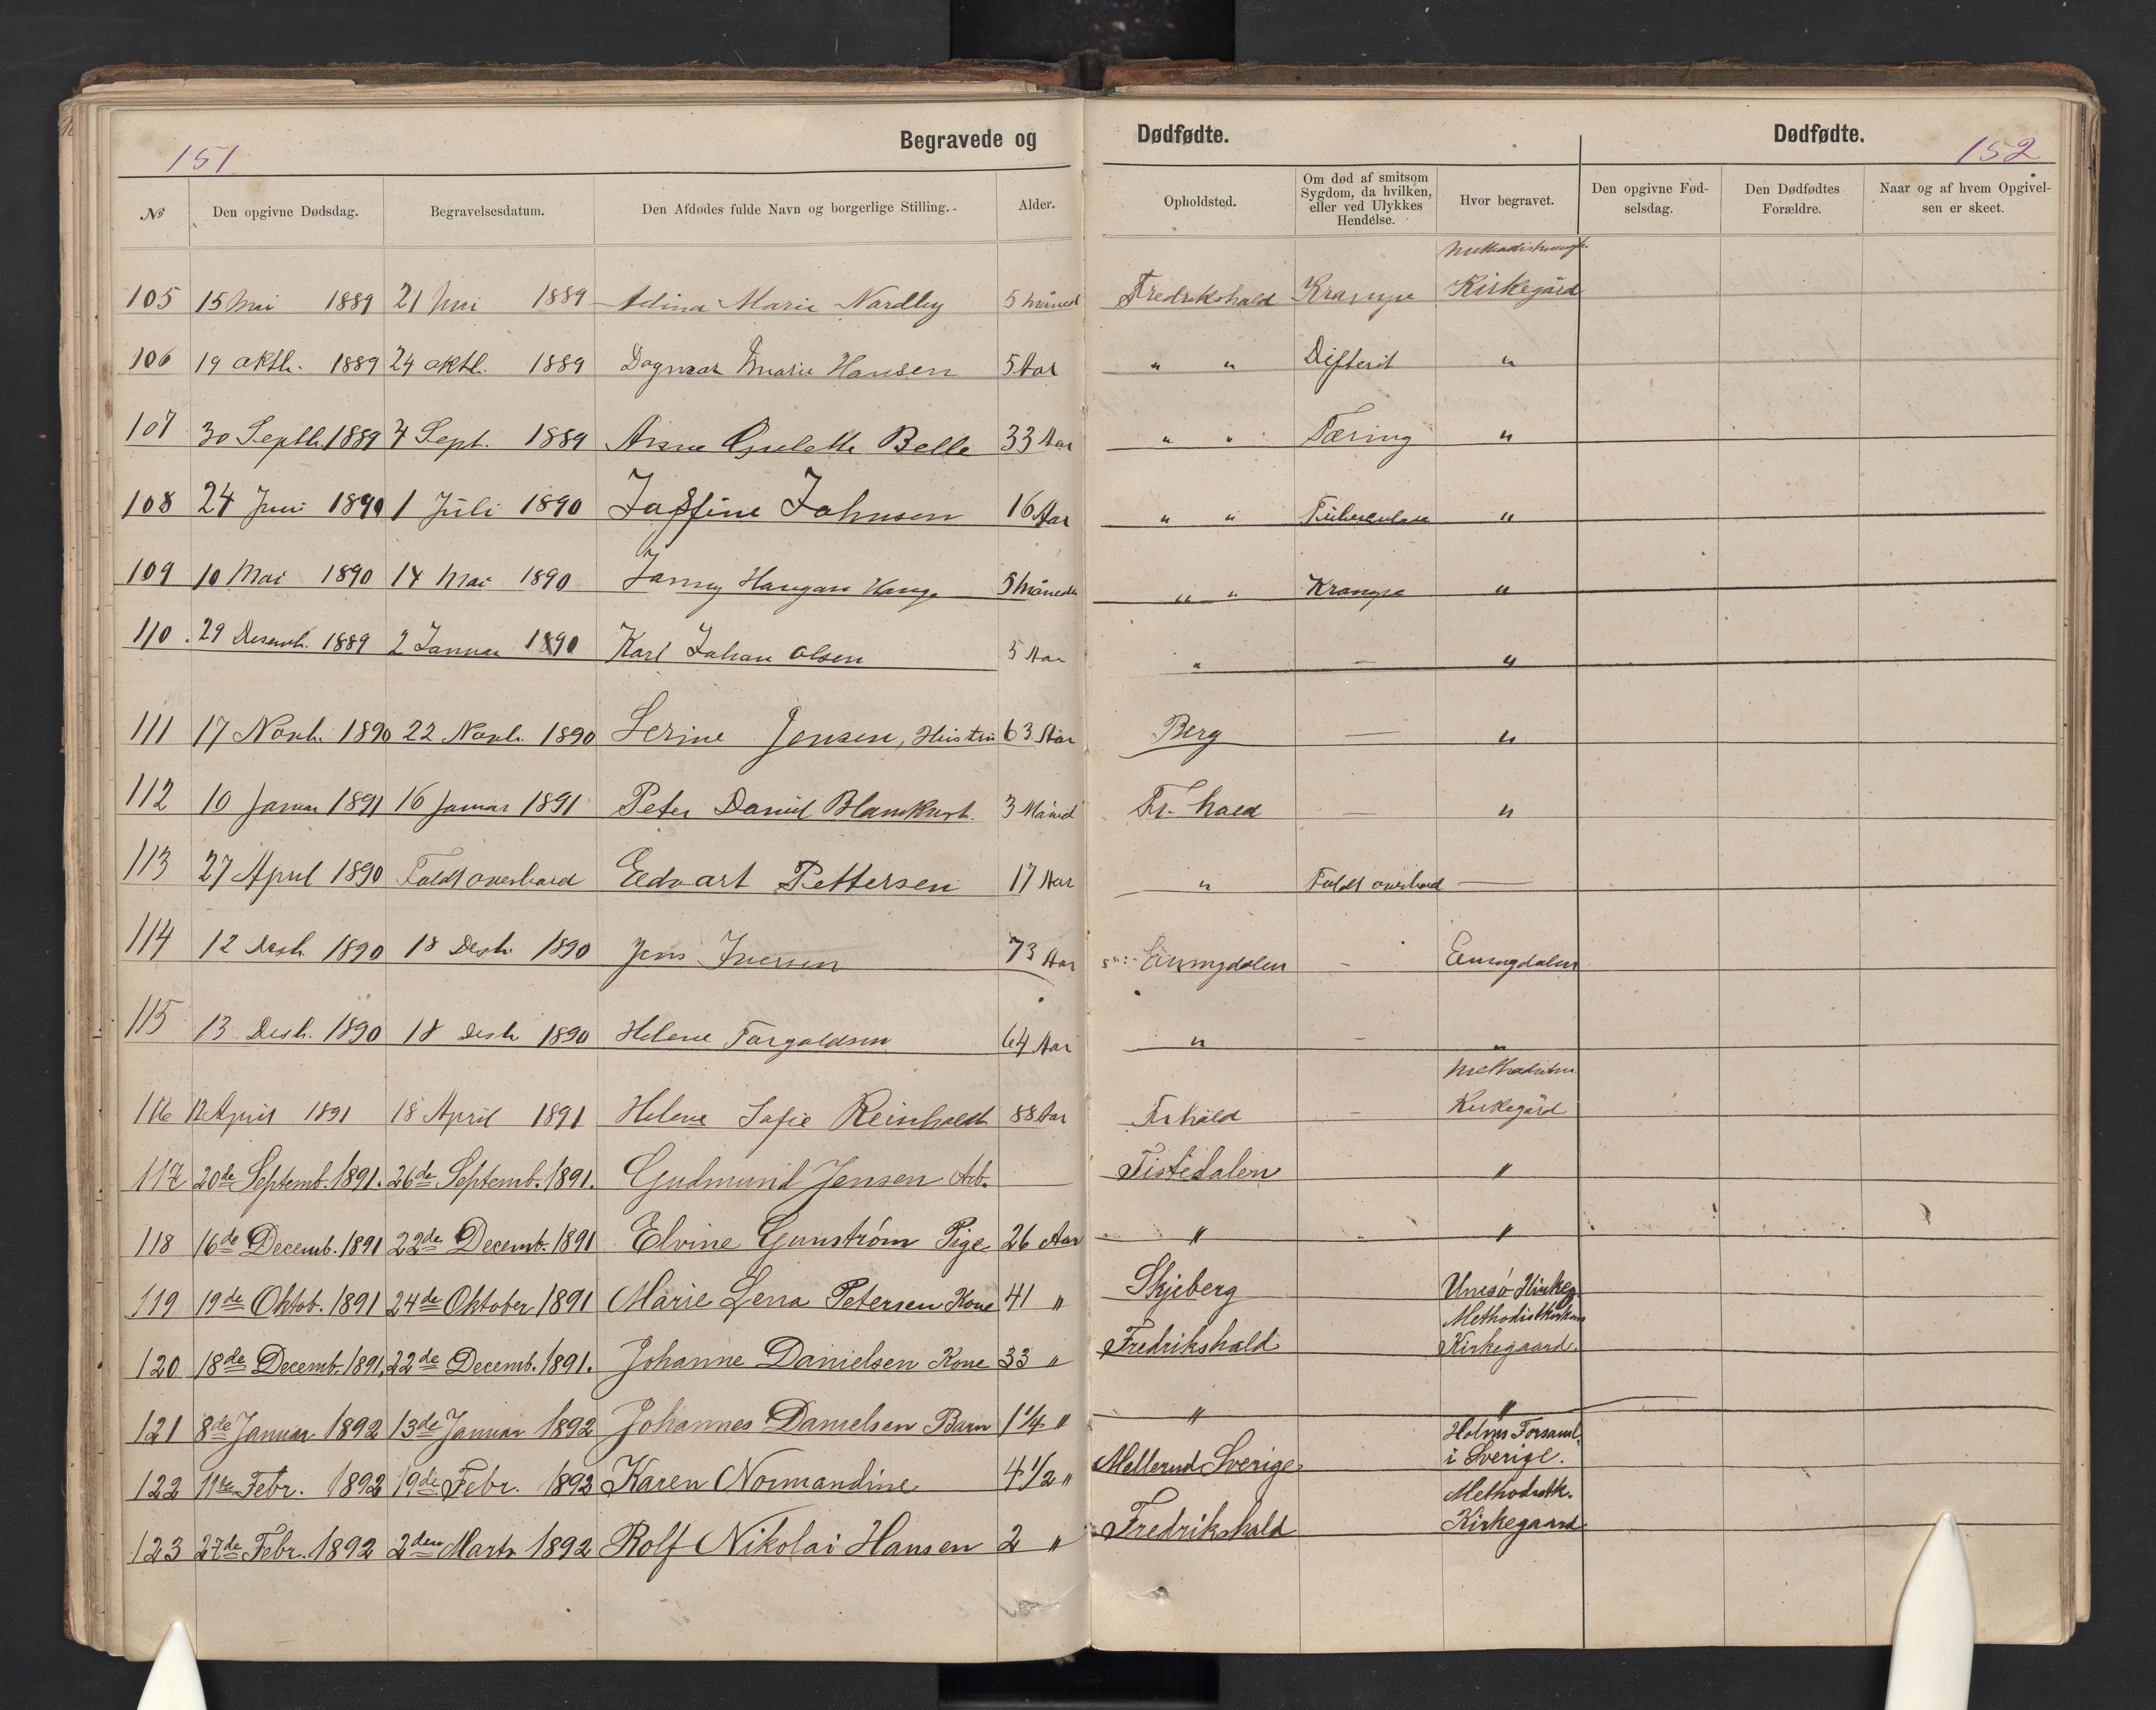 151
Begravede og
Dødfødte.
Dødfødte.
152
№
Den opgivne Dødsdag.
Begravelsesdatum.
Den Afdødes fulde Navn og borgerlige Stilling.
Alder.
Opholdsted.
Om død af smitsom
Sygdom, da hvilken,
eller ved Ulykkes
Hendelse.
Hvor begravet.
Den opgivne Fød-
selsdag.
Den Dødfødtes
Forældre.
Naar og af hvem Opgivel-
sen er skeet.
105 15 Mai 1889 21 Mai 1889 Adina Marie Nordby 5 Måned Fredrikshald Krampe Kirkegård
106 19 oktb. 1889 24 oktb. 1889 Dagmar Marie Hansen 5 Aar " " Difterit "
107 30 Septb. 1889 4 Sept. 1889 Anne Belle 33 Aar " " Tæring "
108 24 Juni 1890 1 Juli 1890 Josefine Johnsen 16 Aar " " "
109 10 Mai 1890 14 Mai 1890 Jenny Haugan 5 Måneder " " Krampe "
110. 29 Desemb. 1889 2 Januar 1890 Karl Johan Olsen 5 Aar " — "
111 17 Novb. 1890 22 Novb. 1890 Serine Jensen, Hustru 63 Aar Berg — "
112 10 Januar 1891 16 Januar 1891 Peter Daniel 3 Måned Fr. hald — "
113 27 April 1890 Faldt overbord Edvart Pettersen 17 Aar " Faldt overbord —
114 12 Desb. 1890 18 Desb. 1890 Jens Iversen 73 Aar Enningdalen - Enningdalen
115 13 Desb. 1890 18 Desb 1890 Helene Torgoldsen 64 Aar " - "
Methodistm.
116 12 April 1891 18 April 1891 Helene Sofie Reinholdt 88 Aar Frhald - Kirkegård
117 20de Septemb. 1891. 26de Septemb. 1891. Gudmund Jensen Arb. — Tistedalen "
118 16de Decemb. 1891 22de Decemb. 1891 Elvine Gunstrøm Pige 26 Aar " "
119 19de Oktob. 1891 24de Oktober 1891 Marie Lena Petersen Kone 41 " Skjeberg
120 18de Decemb. 1891, 22de Decemb. 1891. Johanne Danielsen Kone 33 " Fredrikshald Kirkegaard.
121 8de Januar 1892 13de Januar 1892 Johannes Danielsen Barn 1 1/4 " " "
Holms Forsaml.
122 11te Febr. 1892 19de Febr. 1892 Karen Normandine 4 1/2 " Mellerud Sverige i Sverige.
Methodistk.
123 27de Febr. 1892 2den Marts 1892 Rolf Nikolai Hansen 2 " Fredrikshald Kirkegaard